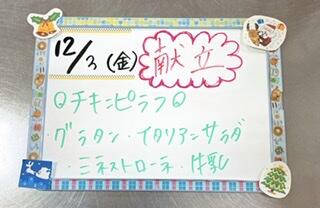 12/3(金) 献立
○チキンピラフ○
・グラタン・イタリアンサラダ
・ミネストローネ・牛乳